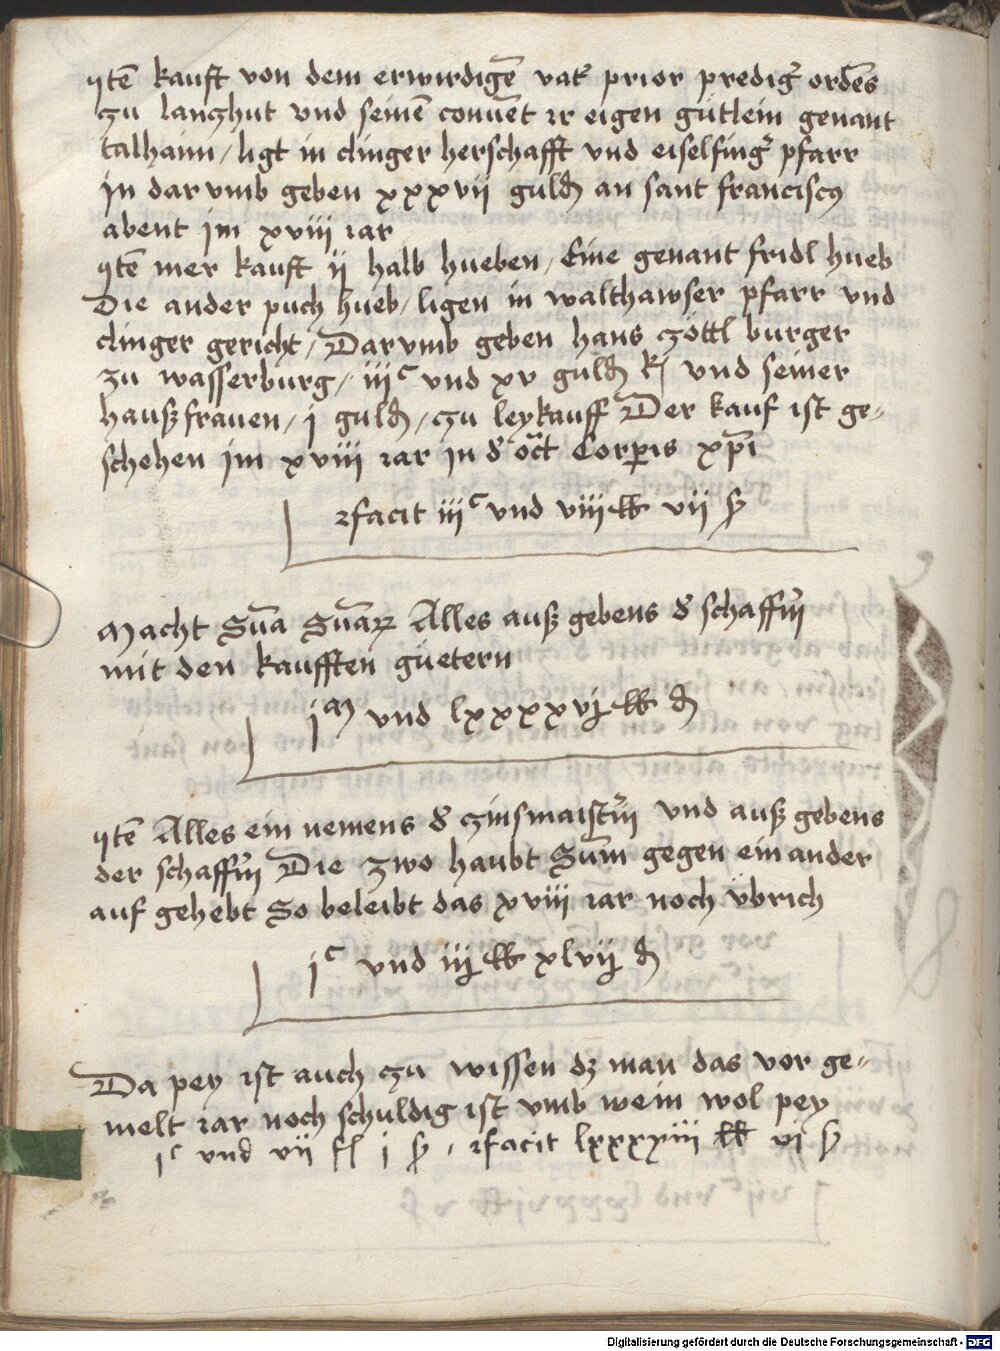 ytē kauft von dem erwirdigē vat͛ prior predig͛ ordēs
zu lanzhut vnd seinē conuēt ir eigen gütlein genant
talhaim / ligt in clinger herschafft vnd eiselfing͛ pfarr
in dar vmb geben xxxvii guld̄ an sant franciscꝯ
abent im xviii iar
ytē mer kauft ij halb hueben / Eine genant fridl hueb
Die ander puch hueb / ligen in walthawser pfarr vnd
clinger gericht / Darvmb geben hans zöttl burger
zu wasserburg / iiiᶜ vnd xv guld̄ R̄ vnd seiner
haußfrauen / j guld̄ / zu leykauff Der kauf ist ge-
schehen im xviii iar in d͛ oct̄ Corꝑis xp̄i
facit iiiᶜ vnd viii lb vii ß
Macht Sūa Sūaꝝ Alles auß gebens d͛ schaff͛in
mit den kaufften güetern
jᴹ vnd lxxxxvj lb d̄
ytē Alles ein nemens d͛ zinsmaist͛in vnd auß gebens
der schaff͛in Die zwo haubt Sūm gegen ein ander
auf gehebt So beleibt das xviii iar noch vbrich
jᶜ vnd iij lb xlvij d̄
Da pey ist auch zu wissen dz man das vor ge-
melt iar noch schuldig ist vmb wein wol pey
jᶜ vnd vii fl j ß / facit lxxxxiii lb vi ß
Digitalisierung gefördert durch die Deutsche Forschungsgemeinschaft - DFG